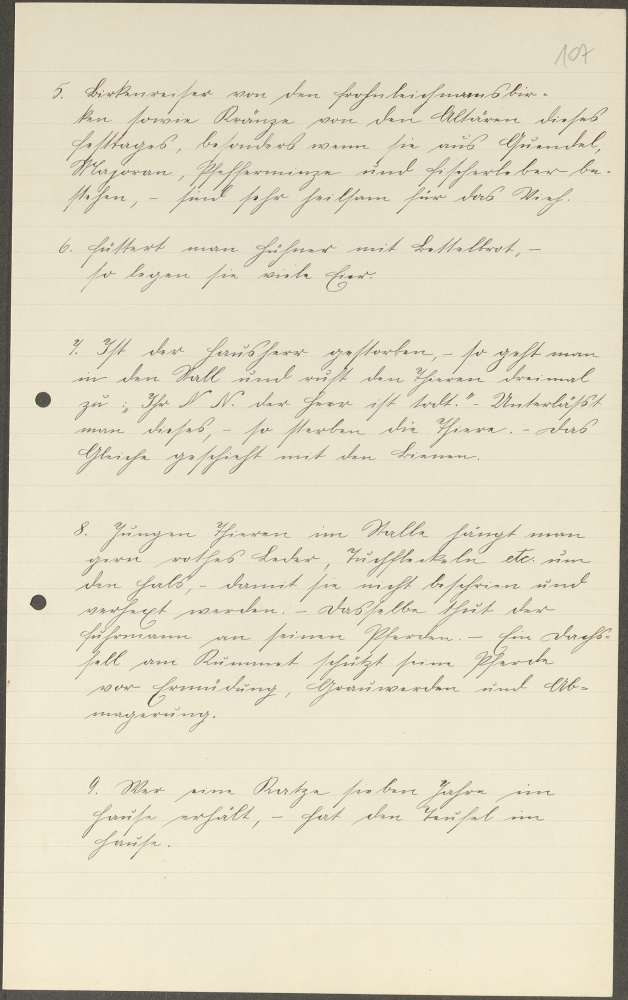 107
5. Birkenreiser von den Frohnleichnamsbir-
ken sowie Kränze von den Altären dieses
Festtages, besonders wenn sie aus Quendel,
Majoran, Pfefferminze und Fischerleber be-
stehen, – sind sehr heilsam für das Vieh.
6. Füttert man Hühner mit Bettelbrot, –
so legen sie viele Eier.
7. Ist der Hausherr gestorben, – so geht man
in den Stall und ruft den Thieren dreimal
zu: „Ihr N. N. der Herr ist todt." – Unterläßt
man dieses, – so sterben die Thiere. – Das
Gleiche geschieht mit den Bienen.
8. Jungen Thieren im Stalle hängt man
gern rothes Leder, Tuchfleckeln etc. um
den Hals, – damit sie nicht beschrien und
verhext werden. – Dasselbe thut der
Fuhrmann an seinen Pferden. – Ein Dachs-
fell am Kummet schützt seine Pferde
vor Ermüdung, Grauwerden und Ab-
magerung.
9. Wer eine Katze sieben Jahre im
Hause erhält, – hat den Teufel im
Hause.